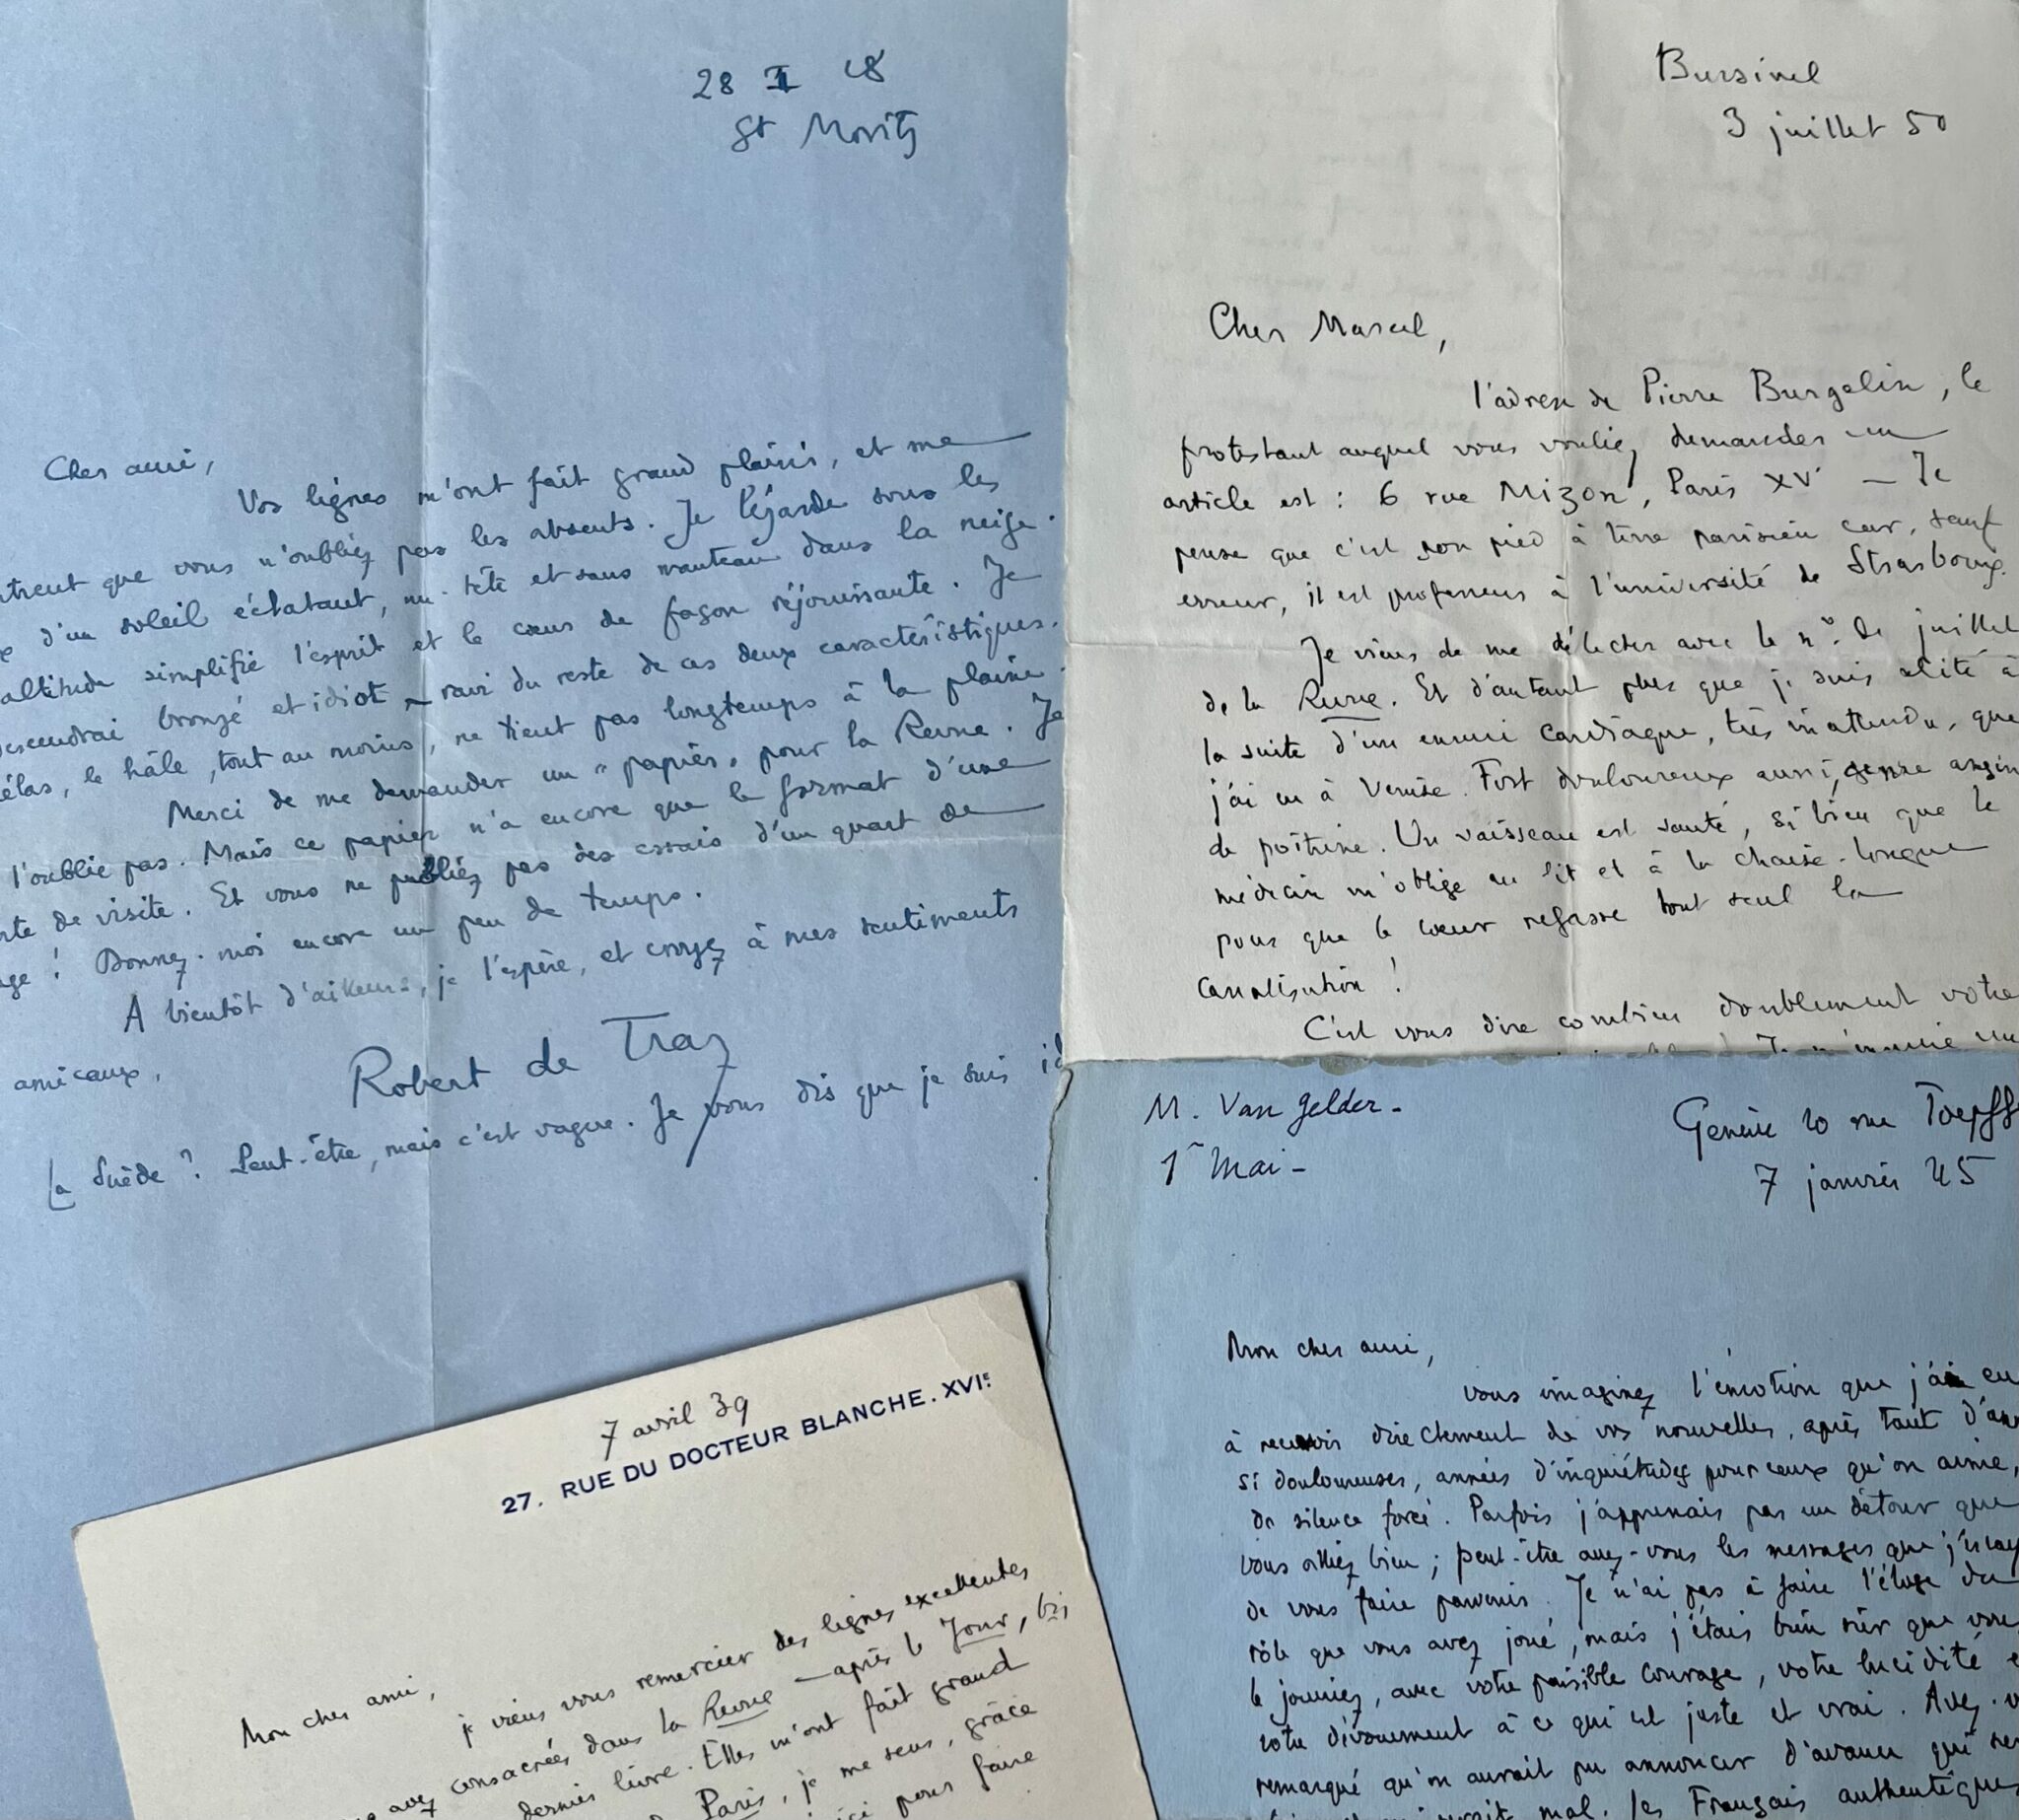 28 I 48
St Moritz
Cher ami,
Vos lignes m'ont fait grand plaisir, et me
que vous n'oubliez pas les absents. Je lézarde sous les
d'un soleil éclatant, nu-tête et sans manteau dans la neige.
altitude simplifie l'esprit et le cœur de façon réjouissante. Je
bronzé et idiot – ravi du reste de ces deux caractéristiques.
le hâle, tout au moins, ne tient pas longtemps à la plaine.
Merci de me demander un "papier" pour la Revue. Je
l'oublie pas. Mais ce papier n'a encore que le format d'une
de visite. Et vous ne publiez pas des essais d'un quart de
! Donnez-moi encore un peu de temps.
A bientôt d'ailleurs, je l'espère, et croyez à mes sentiments
amicaux,
Robert de Traz
La Suède ? Peut-être, mais c'est vague. Je vous dis que je suis
Bursinel
3 juillet 50
Cher Marcel,
l'adresse de Pierre Burgelin, le
protestant auquel vous vouliez demander un
article est : 6 rue Mizon, Paris XV – Je
pense que c'est son pied à terre parisien car, sauf
erreur, il est professeur à l'université de Strasbourg.
Je viens de me délecter avec le n° de juillet
de la Revue. Et d'autant plus que je suis alité à
la suite d'un ennui cardiaque, très inattendu, que
j'ai eu à Venise. Fort douloureux aussi, genre angine
de poitrine. Un vaisseau est sauté, si bien que le
médecin m'oblige au lit et à la chaise-longue
pour que le cœur refasse tout seul la
canalisation !
C'est vous dire combien doublement votre
M. Van Gelder -
1er Mai -
Genève 10 rue
7 janvier 45
Mon cher ami,
vous imaginez l'émotion que j'ai eu
à recevoir directement de vos nouvelles, après tant
si douloureuses, années d'inquiétudes pour ceux qu'on aime,
de silence forcé. Parfois j'apprenais par un détour que
vous alliez bien ; peut-être avez-vous les messages que
de vous faire parvenir. Je n'ai pas à faire l'éloge du
rôle que vous avez joué, mais j'étais bien sûr que vous
le joueriez, avec votre paisible courage, votre lucidité
votre dévouement à ce qui est juste et vrai. Avez-
remarqué qu'on aurait pu annoncer d'avance qui se
mal. les Français authentiques
7 avril 39
27. RUE DU DOCTEUR BLANCHE. XVIE.
Mon cher ami,
je viens vous remercier des lignes excellentes
avez consacrées dans la Revue – après le Jour,
dernier livre. Elles m'ont fait grand
Paris, je me sens, grâce
pour faire